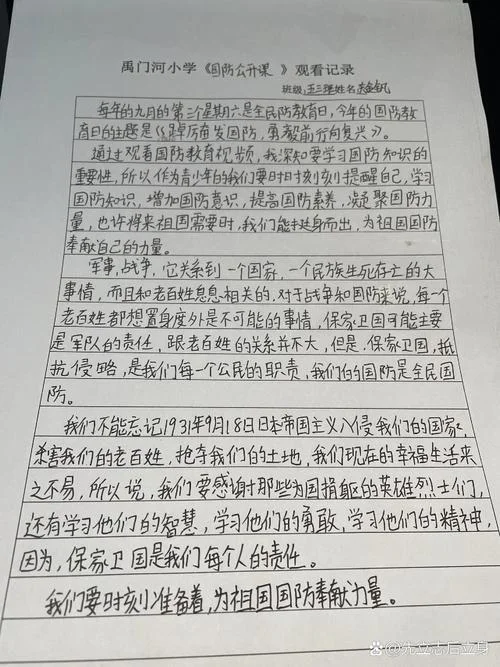 禹门河小学《国防公开课》观看记录
班级，五三班姓名
每年的九月的第三个星期六是全民防教育日，今年的国防教
育日的主题是《踔厉奋发国防，勇毅前行向复兴》。
通过观看国防教育视频，我深知要学习国防知识的
重要性，所以作为青少年的我们要时时刻刻提醒自己，学习
国防知识，增加国防意识，提高国防素养，凝聚国防力
量，也许将来祖国需要时，我们能挺身而出，为祖国国防
奉献自己的力量。
军事，战争，它关系到一个国家，一个民族生死存亡的大
事情，而且和老百姓息息相关的，对于战争和国防来说，每一个
老百姓都想置身度外是不可能的事情，保家卫国可能主要
是军队的责任，跟老百姓的关系并不大，但是，保家卫国，抵
抗侵略，是我们每一个公民的职责，我们的国防是全民国
防。
我们不能忘记1931年9月18日日本帝国主义入侵我们的国家，
杀害我们的老百姓，抢夺我们的土地，我们现在的幸福生活来
之不易，所以说，我们要感谢那些为国捐躯的英雄烈士们，
还有学习他们的智慧，学习他们的勇敢，学习他们的精神，
因为，保家卫国是我们每个人的责任。
我们要时刻准备着，为祖国国防奉献力量。
@先立志后立身